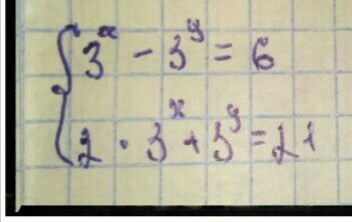 3ˣ - 3ʸ = 6
2 · 3ˣ + 3ʸ = 21